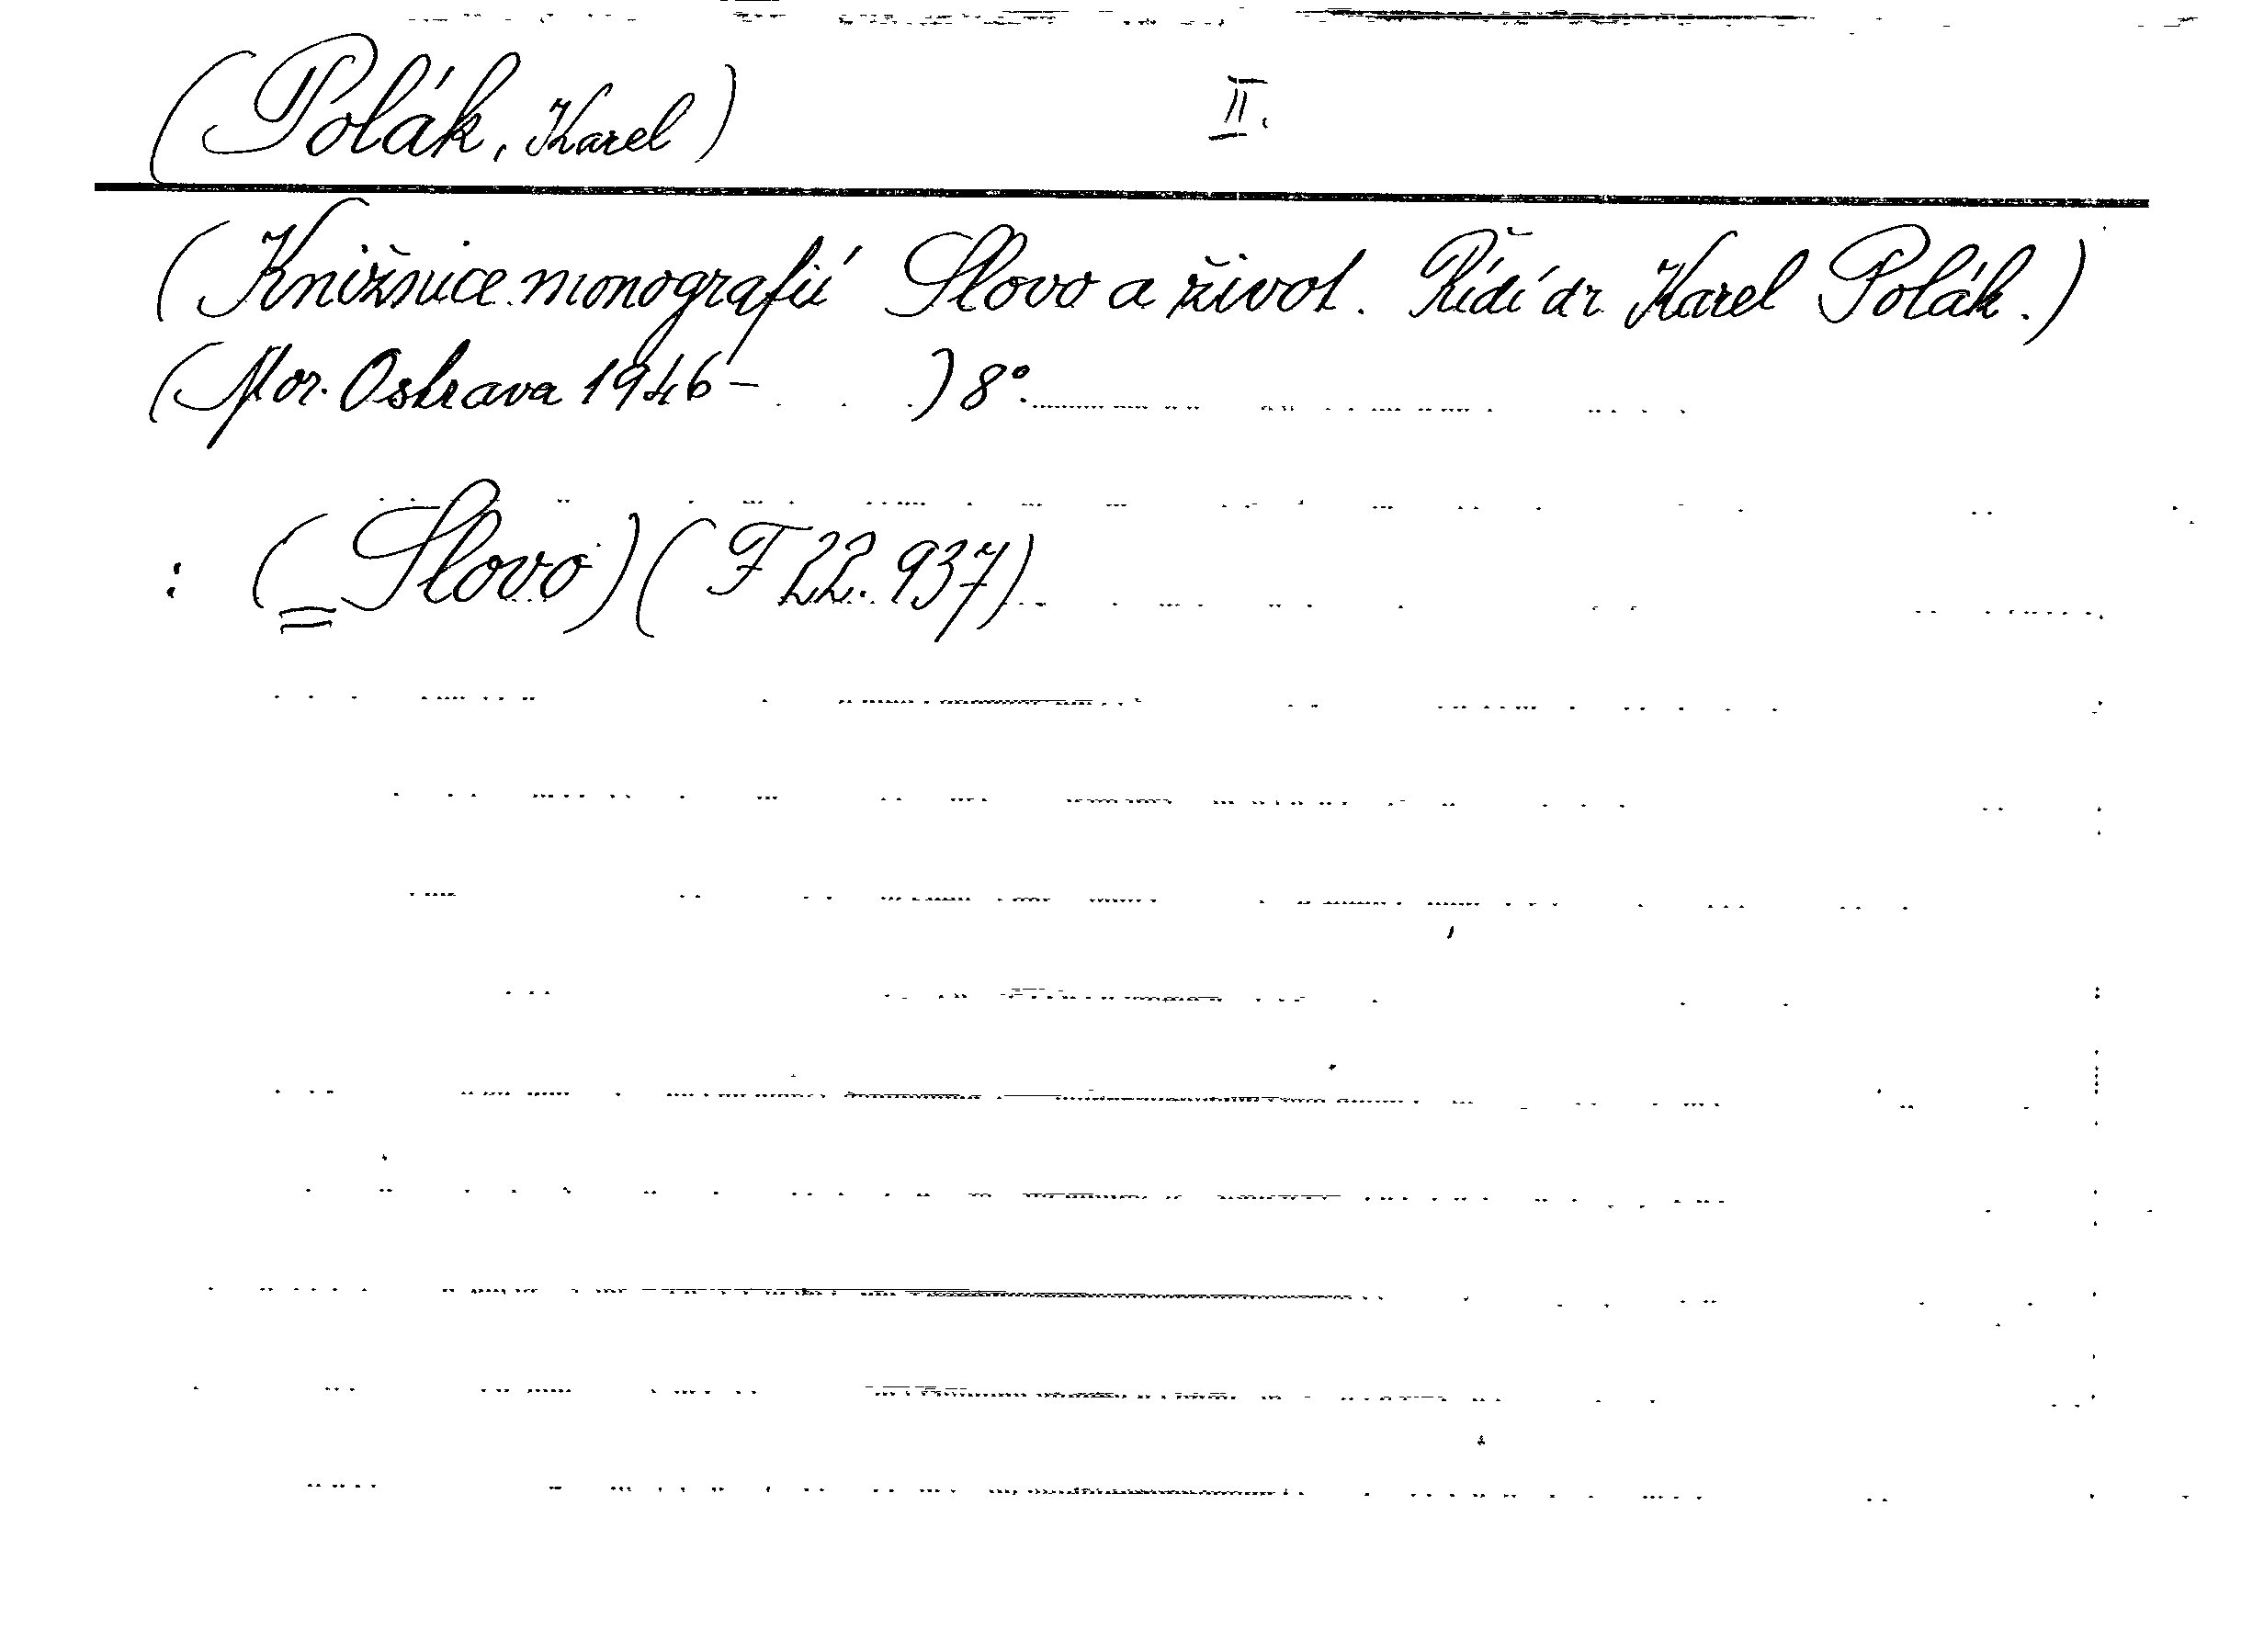 (Polák, Karel) II.
(Knižnice monografií Slovo a život. Řídí dr Karel Polák.)
(Mor. Ostrava 1946– ) 8°.
: (= Slovo) (F 22.937)